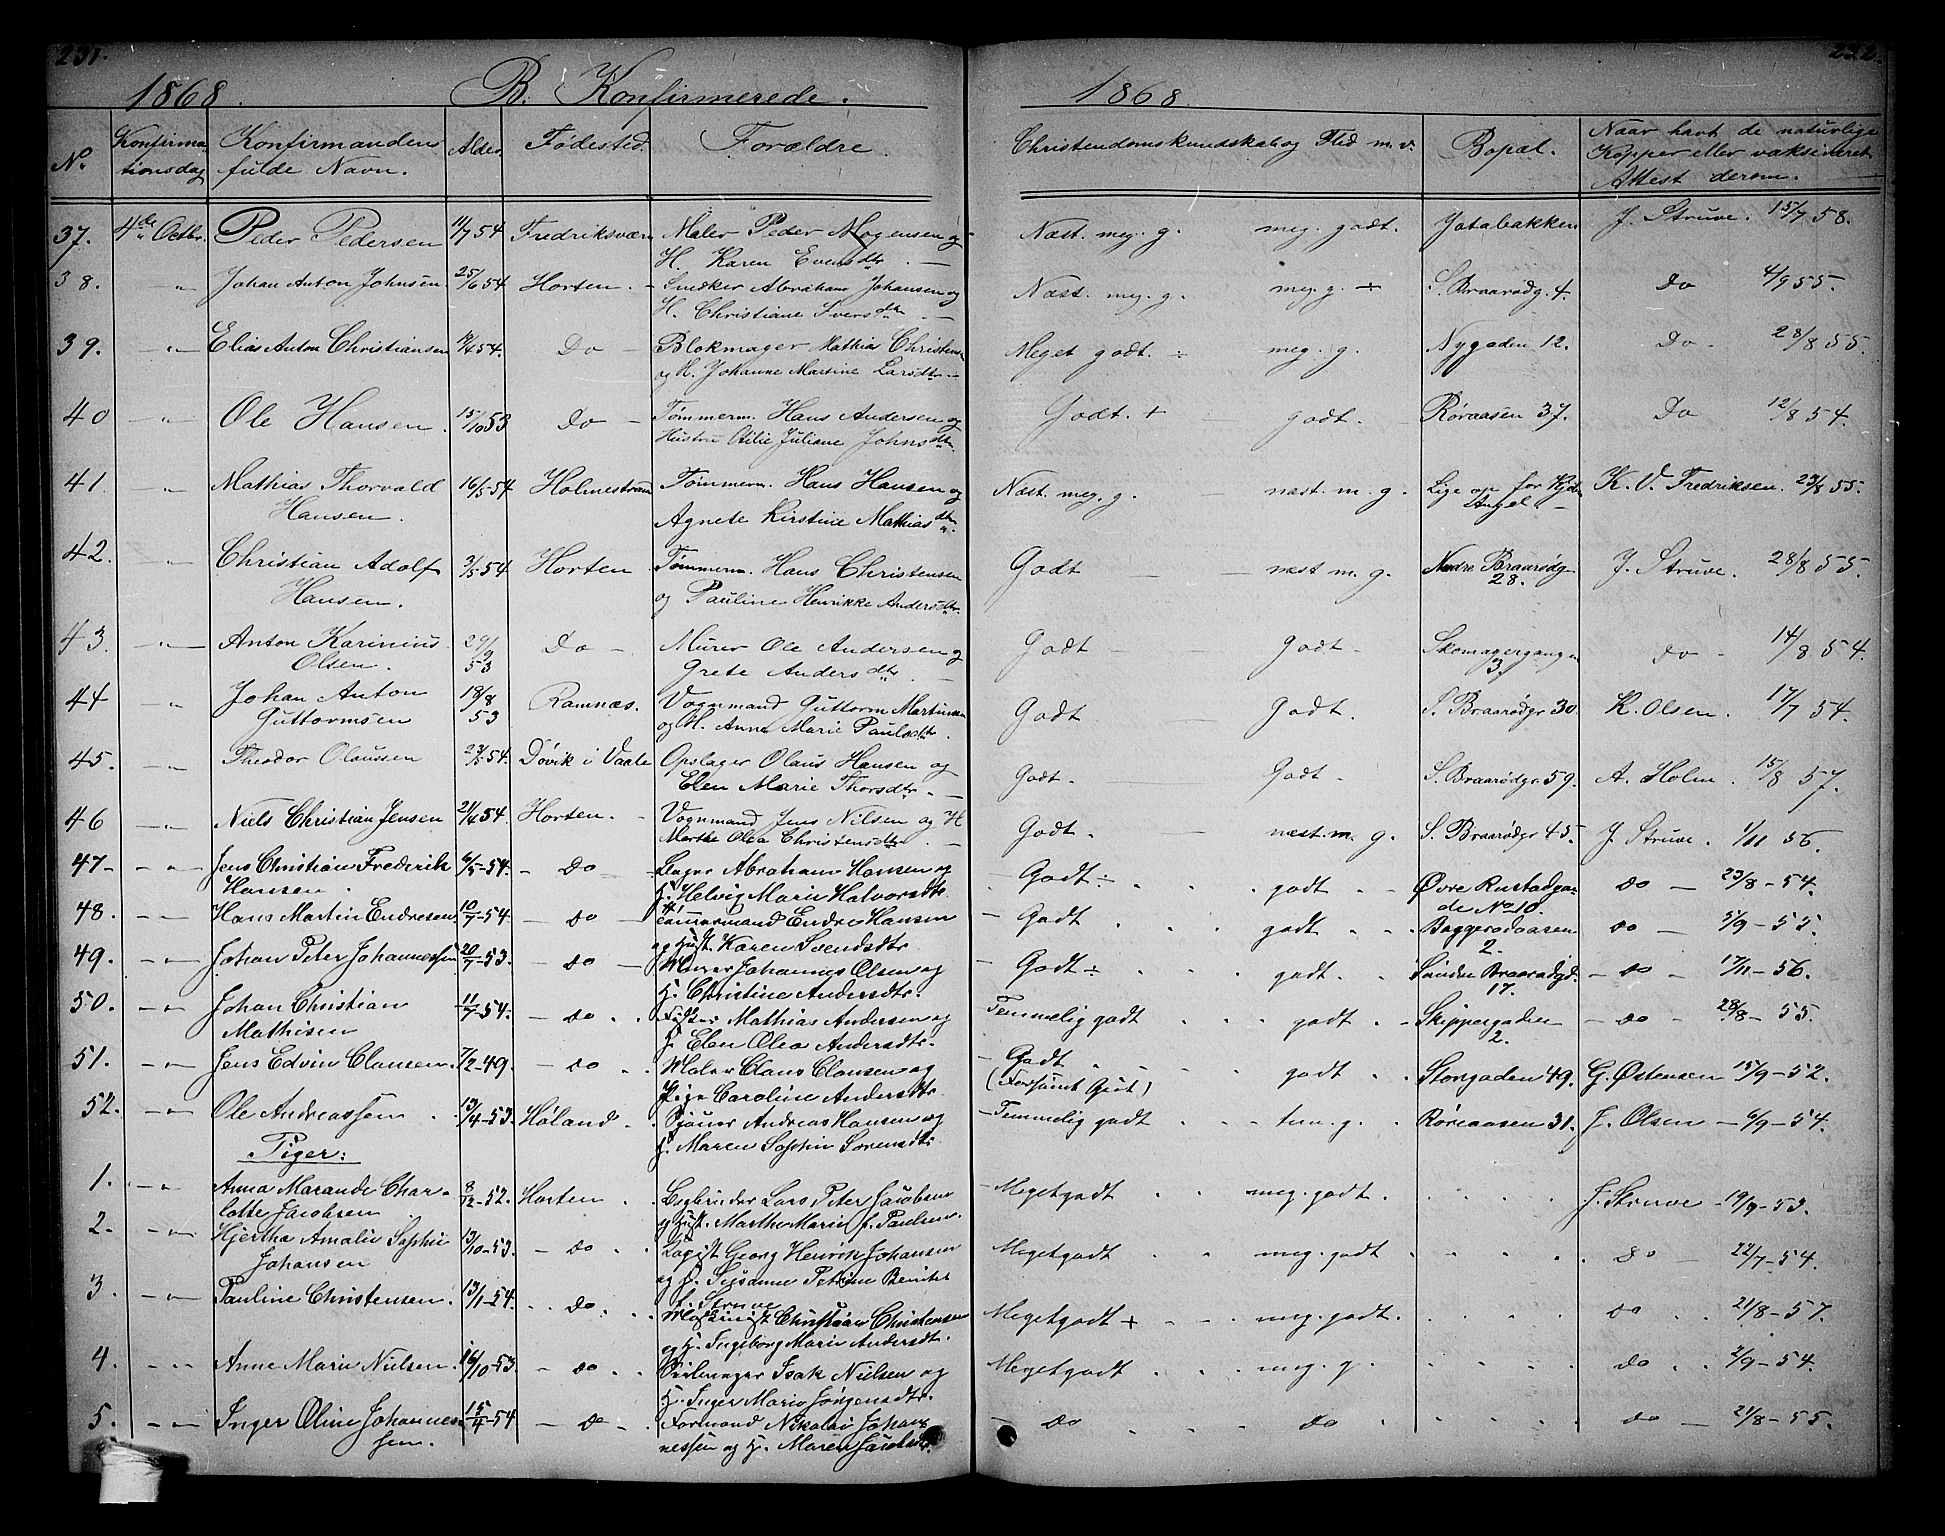 231.
1868. B. Konfirmerede.
No. Konfirmationsdag Konfirmandens fulde Navn. Alder Fødested. Forældre.
37. 4de Octbr. Peder Pedersen 11/7 54 Fredriksværn Maler Peder Mogensen og
H. Karen Evensdtr. —
38. " Johan Anton Johnsen 25/6 54 Horten. - Snedker Abraham Johansen og
H. Christiane Iversdtr. —
39. " Elias Anton Christiansen 54. Do - Blokmager Mathias Christens
og H. Johanne Martine Larsdtr. -
40 " Ole Hansen. 15/10 53 Do - Tømmerm. Hans Andersen og
Hustru Otilie Juliane Johnsdtr.
41. " Mathias Thorvald 16/5 54 Holmestrand Tømmerm. Hans Hansen og
Hansen. Agnete Kirstine Mathiasdtr.
42. " Christian Adolf 3/5 54 Horten Tømmerm. Hans Christensen
Hansen. og Pauline Henrikke Andersdtr.
43. " Anton Karinius 29/9 Do - Murer Ole Andersen og
Olsen. 53 Grete Andersdtr. —
44 " Johan Anton 18/8 Ramnæs. Vognmand Guttorm Martinsen
Guttormsen 53 og H. Anne Marie Paulsdtr.
45. " Theodor Olaussen 54. Døvik i Vaale Opslager Olaus Hansen og
Elen Marie Thorsdtr. —
46 " Niels Christian Jensen 21/4 54. Horten. - Vognmand Jens Nilsen og H
Marthe Olea Christensdtr. —
47- " Jens Christian Frederik 6/5-54. - Do - Lager Abraham Hansen og
Hansen. H. Helvig Marie Halvorsdtr.
48. " Hans Martin Endresen 10/7-54. - do - Tømmermand Endre Hansen
og Hust. Karen Svendsdtr.
49. " Johan Peter Johannessen 20/7-53. - do - Murer Johannes Olsen og
H. Christine Andersdtr.
50. " Johan Christian 11/7-54. - do . . Mathias Andersen og
Mathisen H. Elen Olea Andersdtr.
51. " Jens Edvin Clausen. 7/2-49. - do . Maler Claus Clausen og
Pige Caroline Andersdtr.
52. " Ole Andreassen. 13/4-53. Høland. . Sjouer Andreas Hansen og
H. Maren Sophie Sørensdtr.
Piger:
1. " Anna Marande Char- 8/12-52. Horten . Lars Peter Jacobsen
lotte Jacobsen og Hust. Marthe Marie f. Paulsen.
2. " Hjertha Amalie Sophie 13/10-53. - do . . Logist Georg Henrik Johansen
Johansen og H. Susanne Petrine Benites
f. Struve
3. " Pauline Christensen. 13/1-54. . . do. . . Maskinist Christian Christensen
og H. Ingeborg Marie Andersdt.
4. " Anne Marie Nielsen. 16/10-53. - do . . Seilmager Isak Nielsen og
H. Inger Marie Jörgensdtr.
5. " Inger Oline Johannes- 15/4-54 - do - Formand Nikolai Johan-
sen. nessen og H. Maren Jacobsdtr.
232.
1868
Christendomskundskab og Flid m.v. Bopæl. Naar havt de naturlige
Kopper eller vaksineret
Attest derom.
Næst. meg. g. meg. godt. Jatabakken J. Struve. 15/7 58.
Næst. meg. g. meg. g. ÷ S. Braarødg. 4. Do 4/9 55.
Meget godt. ÷ meg. g. Nygaden 12. Do - 28/8 55.
Godt. + godt. Røraasen 37. Do 12/8 54.
Næst. meg. g. — næst. m. g. Lige op for Kjds K. V. Fredriksen. 23/8 55.
Angel -
Godt — næst m. g. Nedre Braarødg J. Struve. 28/8 55.
28.
Godt — godt - Skomagergangen do - 14/8 54.
3.
Godt — Godt. S. Braarødgr 30. K. Olsen. 17/7 54.
Godt. — Godt - S. Braarødgr 59. A. Holm. 15/8 57.
Godt. — næst. m. g. S. Braarødgr 45. J. Struve. 1/11 56.
- Godt ÷ . . godt . - Øvre Rustadga- do - 23/8-54.
de No 10.
- Godt . . godt . . Baggerødaasen do - 5/9-55.
2.
- Godt ÷ . . godt . Søndre Braarødgd. - do - 17/11-56.
17.
Temmelig godt . . godt . - Skippergaden - do - 28/8- 55.
2.
- Godt . . godt . . Storgaden 49. G. Østensen 15/9-52.
(Forsømt Gut)
- Temmelig godt . . tem. g. . Røreaasen 31. J. Olsen - 6/9-54.
- Meget godt . . meg. godt. . . . J. Struve - 19/9-53.
Meget godt . . meg. godt . . . . do . 22/7-54.
Meget godt + . - . meg. godt. . . . . do . 21/8-57.
Meget godt . . . meg. g. . . . . do . . 2/9-54.
- do . . do . . . . . do - 21/8-55.